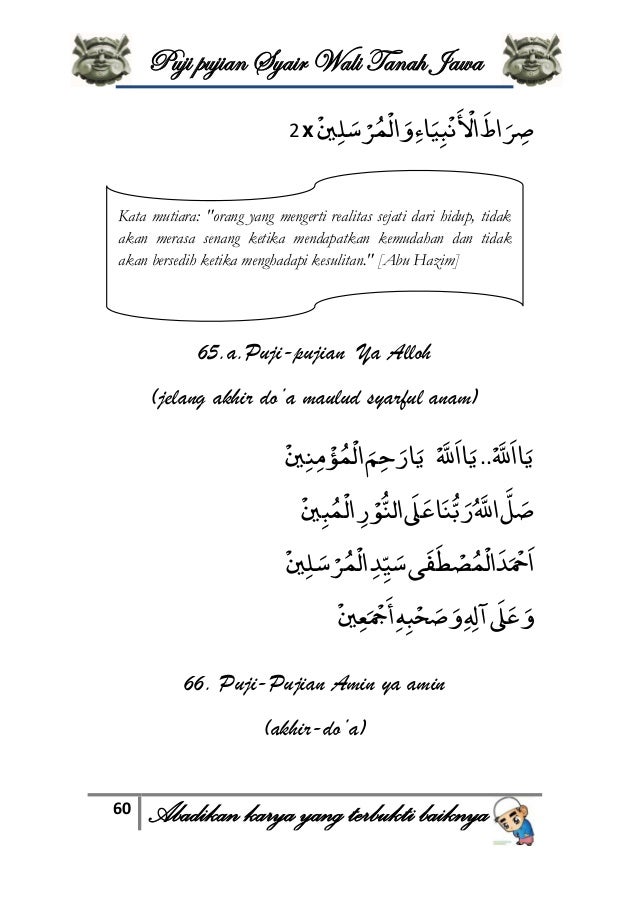 Puji pujian Syair Wali Tanah Jawa
صِرَاطَ الْأَنْبِيَاءِ وَالْمُرْسَلِيْنْ 2x
Kata mutiara: "orang yang mengerti realitas sejati dari hidup, tidak
akan merasa senang ketika mendapatkan kemudahan dan tidak
akan bersedih ketika menghadapi kesulitan." [Abu Hazim]
65.a.Puji-pujian Ya Alloh
(jelang akhir do'a maulud syarful anam)
يَااَللهْ.. يَااَللهْ يَارَاحِمَ الْمُؤْمِنِيْنْ
صَلَّ اللهُ رَبُّنَا عَلَى النُّوْرِ الْمُبِيْنْ
اَحْمَدَ الْمُصْطَفَى سَيِّدِ الْمُرْسَلِيْنْ
وَعَلَى آلِهِ وَصَحْبِهِ أَجْمَعِيْنْ
66. Puji-Pujian Amin ya amin
(akhir-do'a)
60 Abadikan karya yang terbukti baiknya